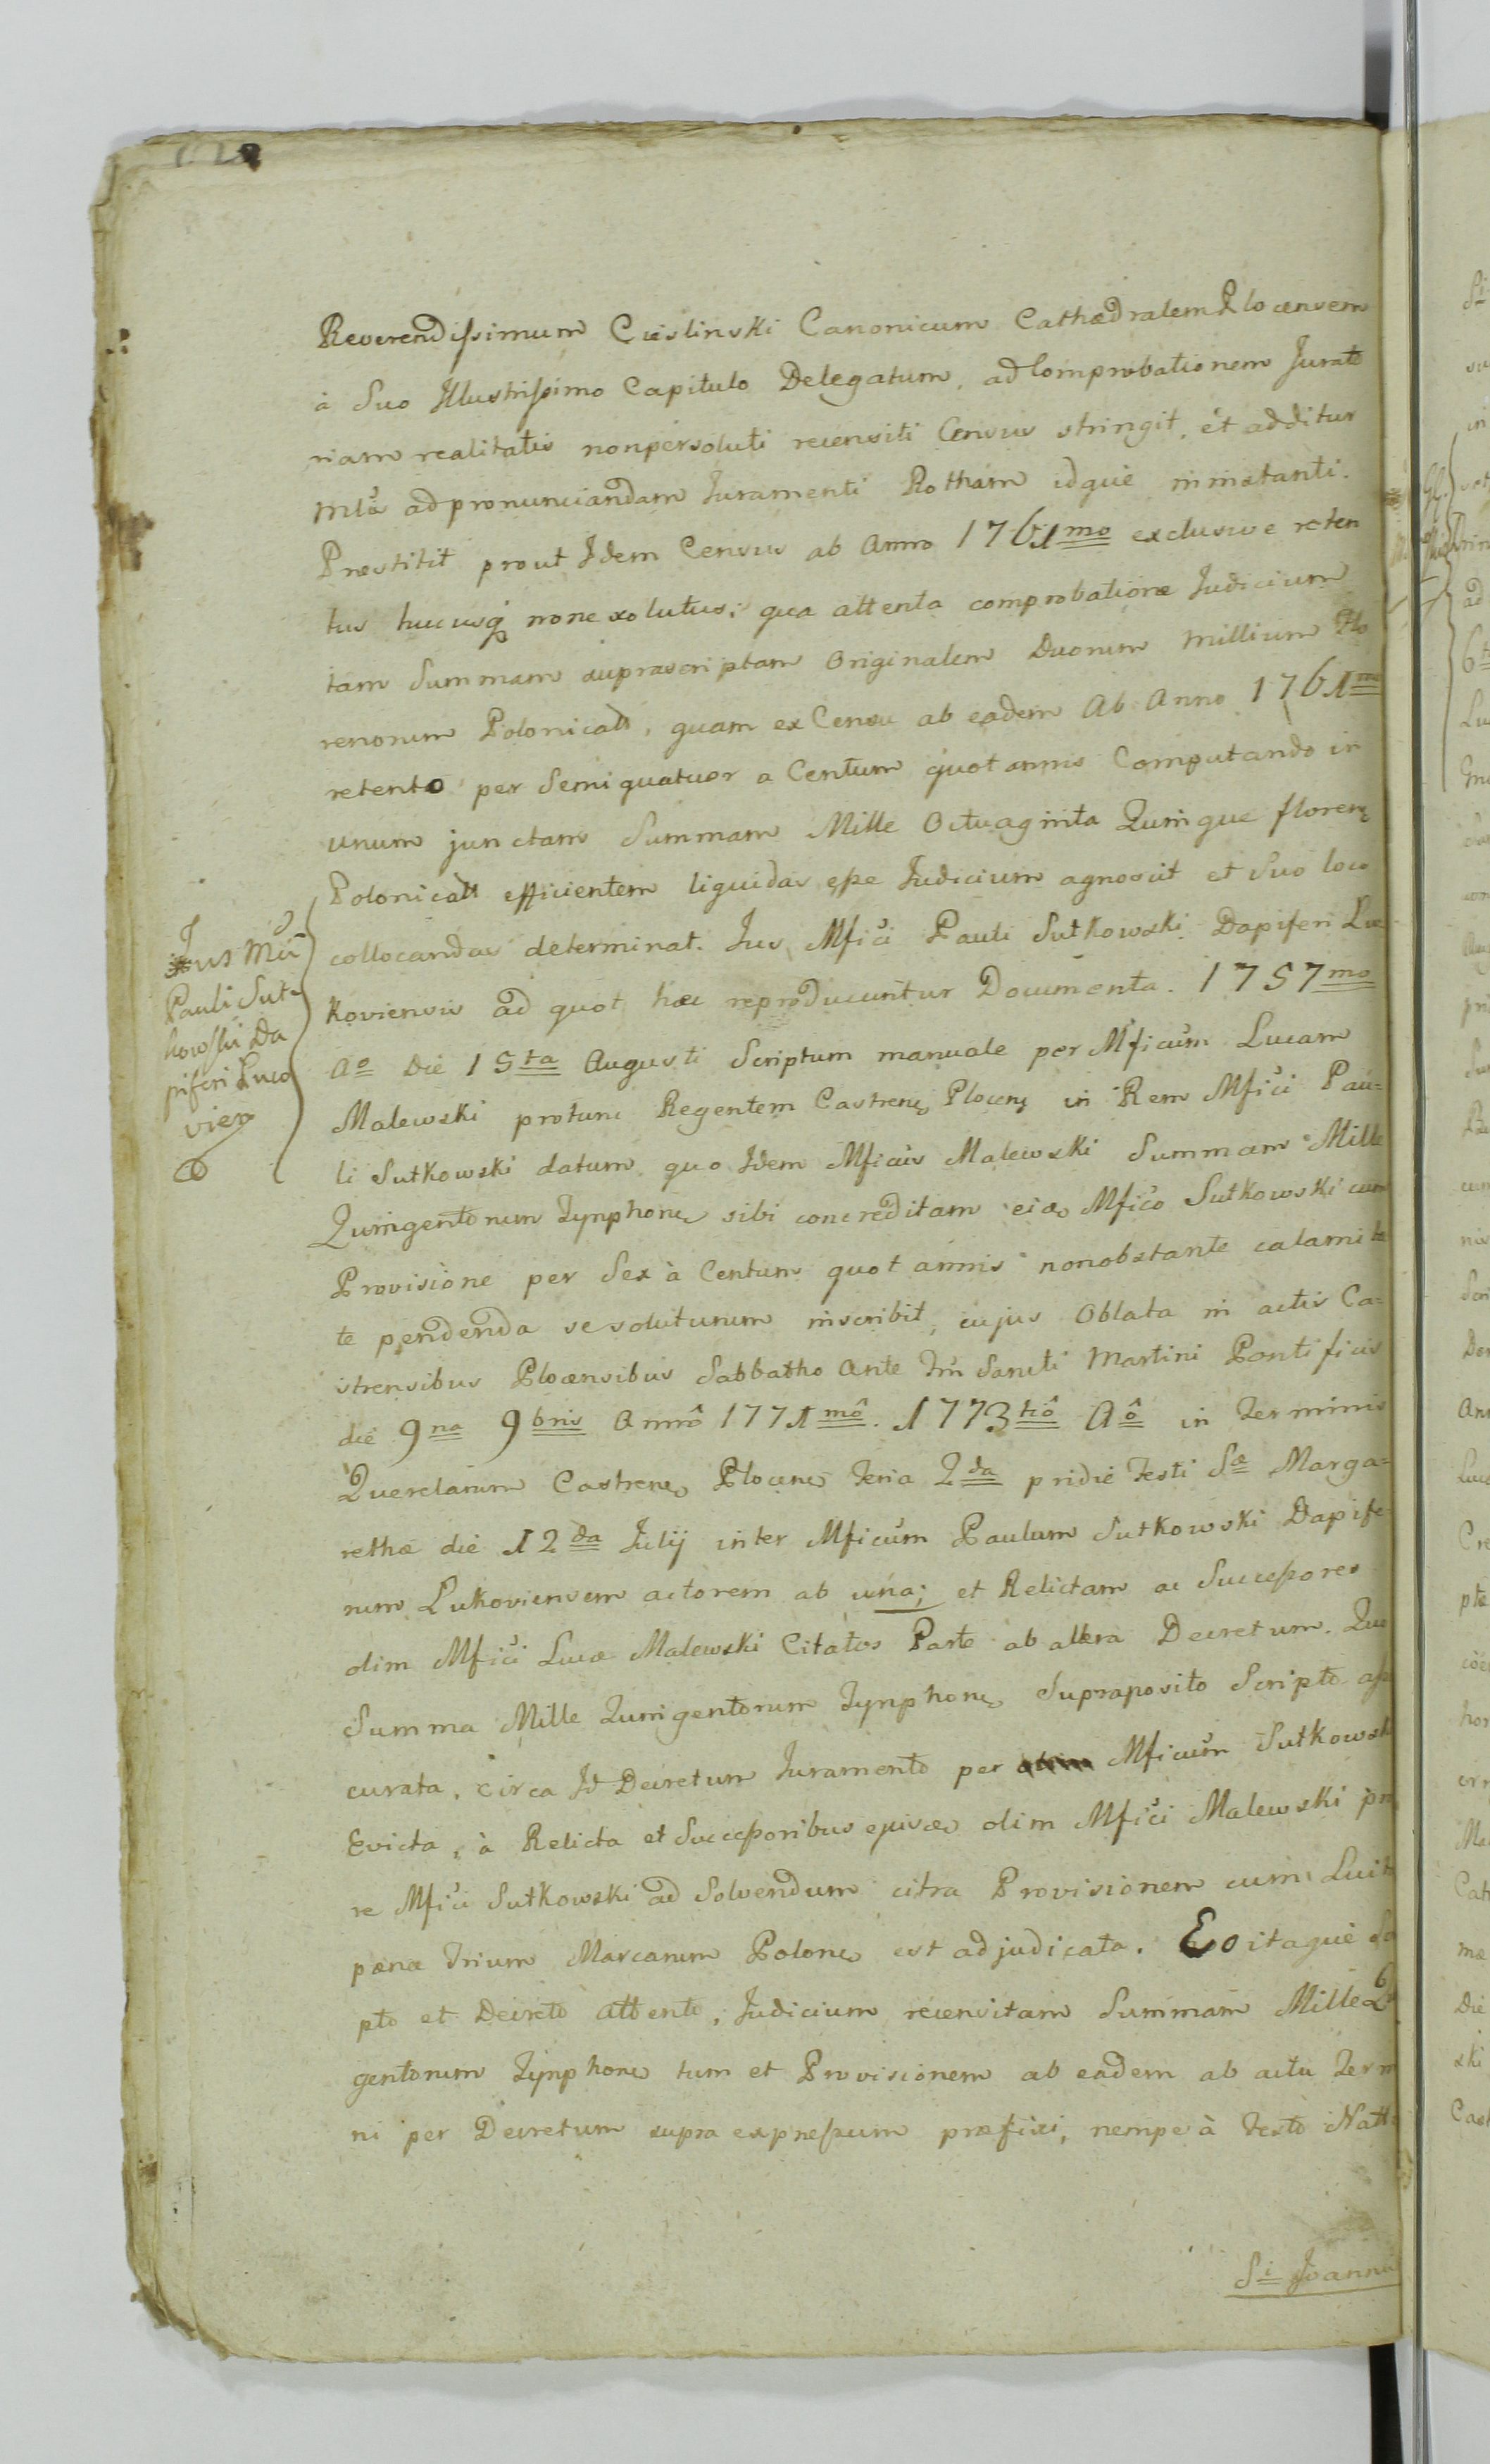 Reverendissimum Cieslinski Canonicum Cathedralem Plocensem
à Suo Illustrissimo Capitulo Delegatum, ad Comprobationem Jurato
riam realitatis nonpersoluti recensiti Census stringit, et additur
ad pronunciandam Juramenti Rotham idque in instanti.
Præstitit prout Idem Census ab Anno 1761mo exclusive reten
tus hucusq non exolutus; qua attenta comprobatione Judicium
tam Summam suprascriptam Originalem Duorum Millium Flo
renorum Polonicall, quam ex Censu ab eadem Ab Anno 1761mo
retento per Semiquatuor a Centum quotannis Computando in
unum junctam Summam Mille Octuaginta Quinque floren
Polonicall efficientem liquidas esse Judicium agnoscit et Suo loco
collocandas determinat. Jus Mfici Pauli Sutkowski Dapiferi Lu
koviensis ad quot hæc reproducuntur Documenta. 1757mo
Ao Die 15ta Augusti Scriptum manuale per Mficum Lucam
Malewski protunc Regentem Castren Plocen in Rem Mfici Pau=
li Sutkowski datum, quo Idem Mficus Malewski Summam Mille
Quingentorum Tynphon sibi concreditam eid Mfico Sutkowski cum
Provisione per Sex à Centum quotannis nonobstante calamita
te pendenda se soluturum inscribit, cujus Oblata in actis Ca=
strensibus Plocensibus Sabbatho Ante Fm Sancti Martini Pontificis
die 9na 9bris Annô 1771mô. 1773tiô Aô in Terminis
Querelarum Castren Plocen Feria 2da pridie Festi Sæ Marga=
rethæ die 12da Julij inter Mficum Paulum Sutkowski Dapife
rum Lukoviensem actorem ab una; et Relictam ac Successores
olim Mfici Lucæ Malewski Citatos Parte ab altera Decretum. Quo
Summa Mille Quingentorum Tynphon Supraposito Scripto asse
curata, circa Id Decretum Juramento per Mficum Sutkowski
Evicta, à Relicta et Successoribus ejusd olim Mfici Malewski
re Mfici Sutkowski ad Solvendum citra Provisionem cum Luit
pæna Trium Marcarum Polon est adjudicata. Eo itaque Sc
pto et Decreto attento, Judicium recensitam Summam Mille
gentorum Tynphon tum et Provisionem ab eadem ab actu Term
ni per Decretum supra expressum præfixi, nempe à Festo Natt
Si Joannis
Jus Mfi
Pauli Sut=
kowski Da
piferi Luco
vien